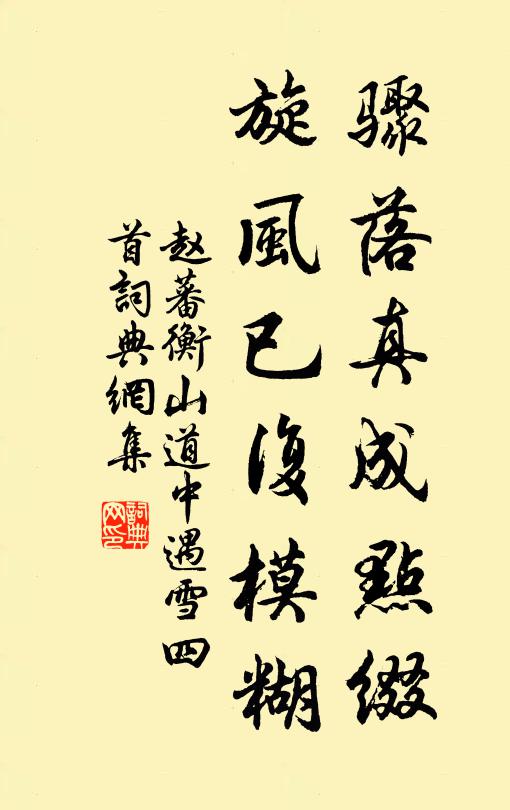 驟落真成點綴
旋風已復模糊
赵蕃衡山道中遇雪四
首詞典網集
詞典网印